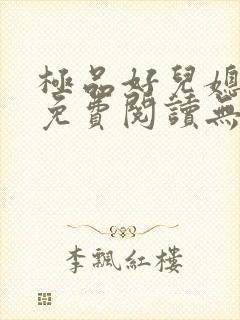 極品好兒媳
免費閱讀無
李飄紅樓